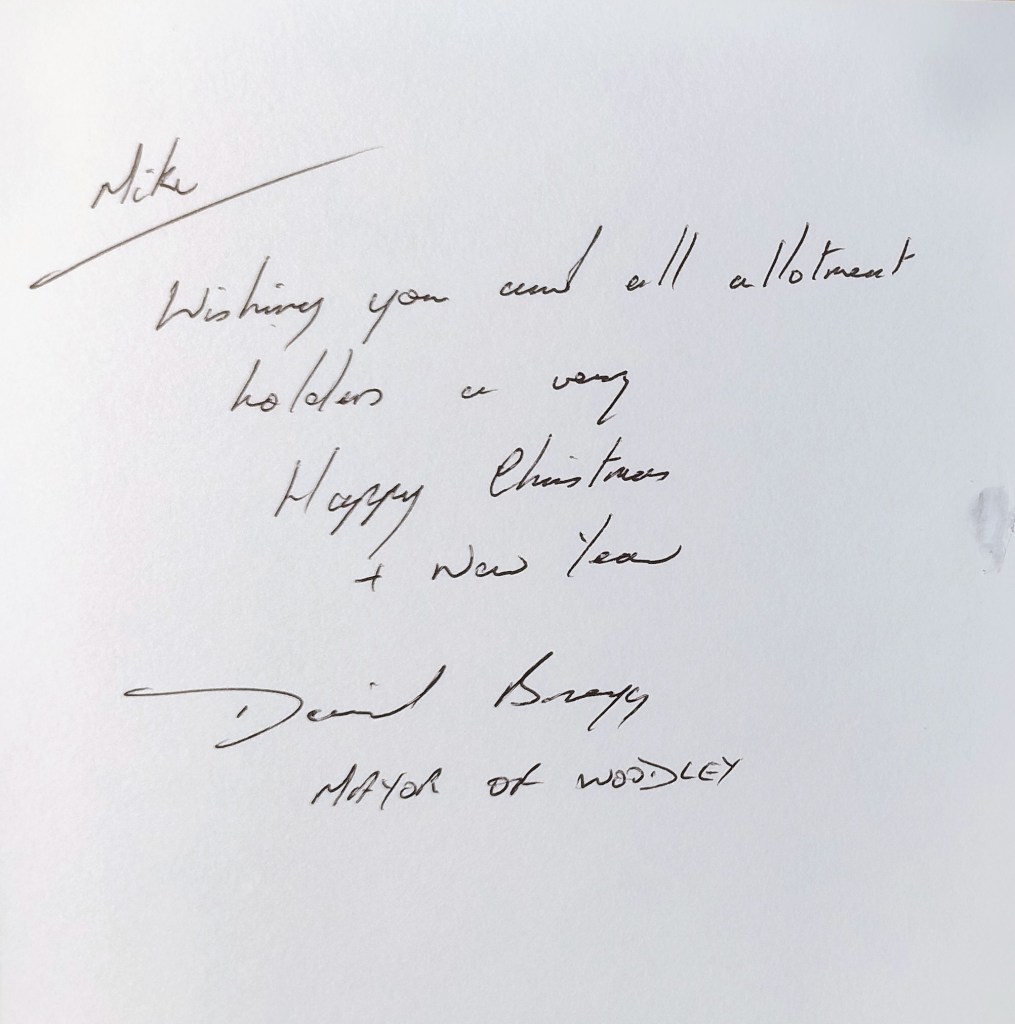 Mike
Wishing you and all allotment
holders a very
Happy Christmas
+ New Year
David Bragg
MAYOR OF WOODLEY